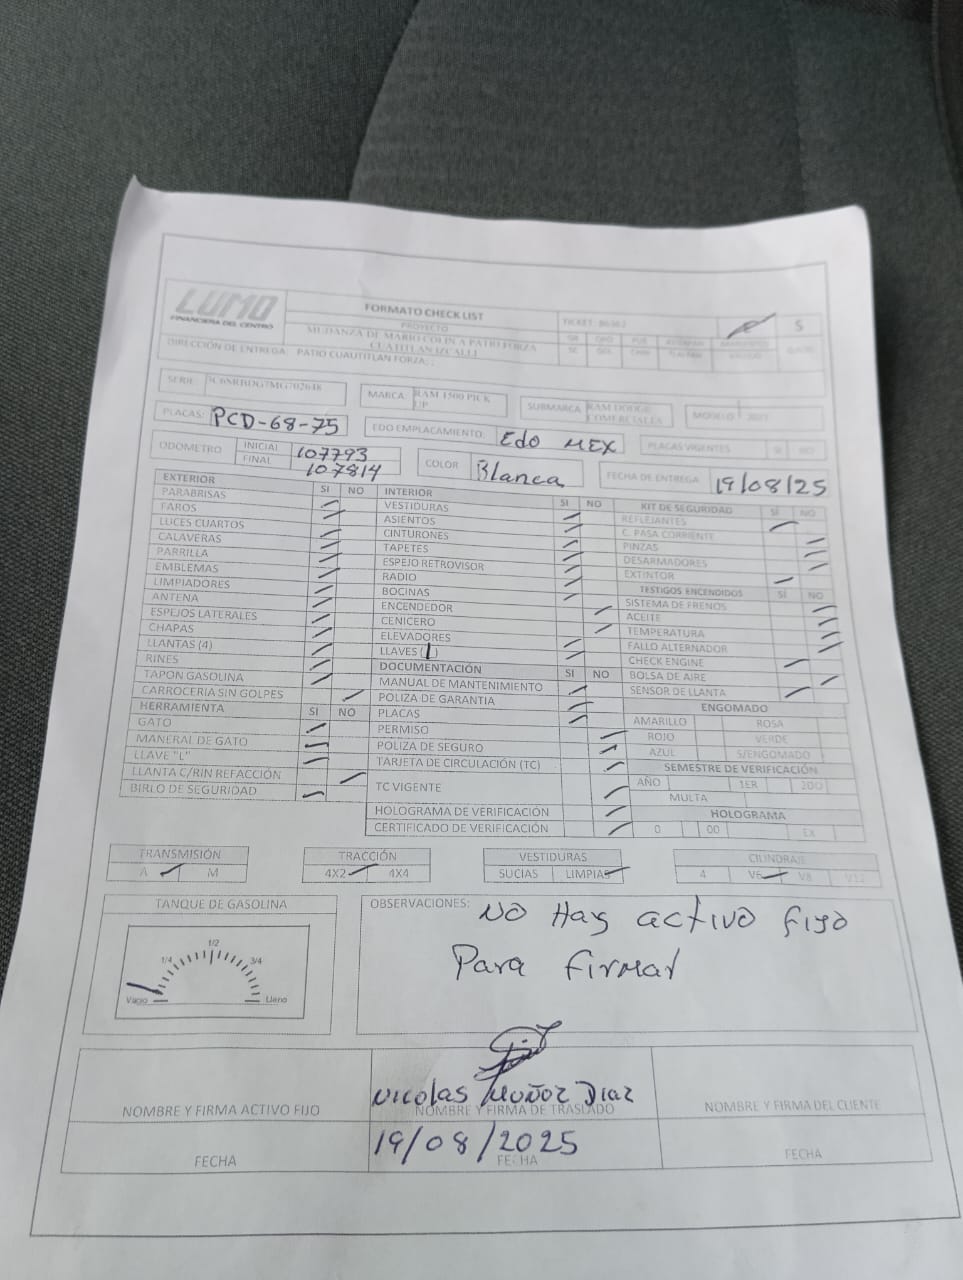 LUMO
FINANCIERA DEL CENTRO
FORMATO CHECK LIST
PROYECTO
MUDANZA DE MARIO COLIN A PATIO FORZA
CUATITLAN IZCALLI
TICKET:
S
DIRECCIÓN DE ENTREGA: PATIO CUAUTITLAN FORZA.
SERIE:
MARCA: RAM 1500 PICK UP
SUBMARCA: RAM DODGE COMERCIALES
MODELO
PLACAS: PCD-68-75
EDO EMPLACAMIENTO: Edo MEX
PLACAS VIGENTES SI NO
ODOMETRO INICIAL 107793
FINAL 107814
COLOR Blanca
FECHA DE ENTREGA: 19/08/25
EXTERIOR SI NO
PARABRISAS
FAROS
LUCES CUARTOS
CALAVERAS
PARRILLA
EMBLEMAS
LIMPIADORES
ANTENA
ESPEJOS LATERALES
CHAPAS
LLANTAS (4)
RINES
TAPON GASOLINA
CARROCERIA SIN GOLPES
HERRAMIENTA SI NO
GATO
MANERAL DE GATO
LLAVE "L"
LLANTA C/RIN REFACCIÓN
BIRLO DE SEGURIDAD
INTERIOR SI NO
VESTIDURAS
ASIENTOS
CINTURONES
TAPETES
ESPEJO RETROVISOR
RADIO
BOCINAS
ENCENDEDOR
CENICERO
ELEVADORES
LLAVES (1)
DOCUMENTACIÓN SI NO
MANUAL DE MANTENIMIENTO
POLIZA DE GARANTIA
PLACAS
PERMISO
POLIZA DE SEGURO
TARJETA DE CIRCULACIÓN (TC)
TC VIGENTE
HOLOGRAMA DE VERIFICACIÓN
CERTIFICADO DE VERIFICACIÓN
KIT DE SEGURIDAD SI NO
REFLEJANTES
C. PASA CORRIENTE
PINZAS
DESARMADORES
EXTINTOR
TESTIGOS ENCENDIDOS SI NO
SISTEMA DE FRENOS
ACEITE
TEMPERATURA
FALLO ALTERNADOR
CHECK ENGINE
BOLSA DE AIRE
SENSOR DE LLANTA
ENGOMADO
AMARILLO ROSA
ROJO VERDE
AZUL S/ENGOMADO
SEMESTRE DE VERIFICACIÓN
AÑO 1ER 2DO
MULTA
HOLOGRAMA
0 00 EX
TRANSMISIÓN
A M
TRACCIÓN
4X2 4X4
VESTIDURAS
SUCIAS LIMPIAS
CILINDRAJE
4 V6 V8 V12
TANQUE DE GASOLINA
1/4 1/2 3/4
Vacio Lleno
OBSERVACIONES: No Hay activo fijo
Para firmar
Nicolas Muñoz Diaz
NOMBRE Y FIRMA ACTIVO FIJO
NOMBRE Y FIRMA DE TRASLADO
NOMBRE Y FIRMA DEL CLIENTE
19/08/2025
FECHA
FECHA
FECHA